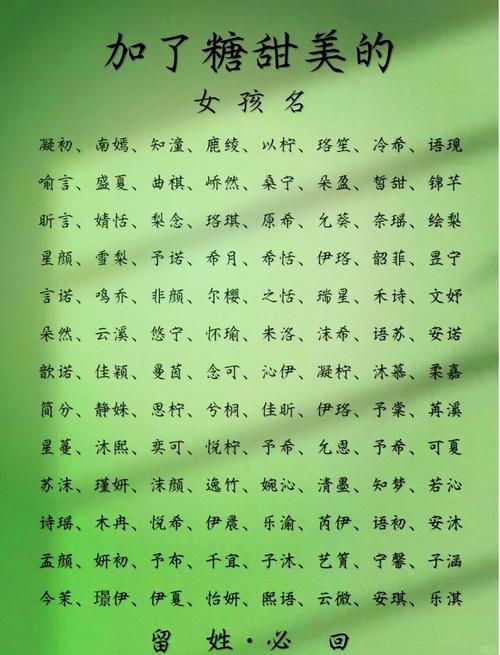 加了糖甜美的
女孩名
凝初、南嫣、知潼、鹿绫、以柠、珞笙、冷希、语现
喻言、盛夏、曲祺、峤然、桑宁、朵盈、皙甜、锦芊
昕言、婧恬、梨念、珞琪、原希、允葵、奈瑶、绘梨
星颜、雪梨、予诺、希月、希恬、伊珞、韶菲、昱宁
言诺、鸣乔、非颜、尔樱、之恬、瑞星、禾诗、文妤
朵然、云溪、悠宁、怀瑜、朱洛、沫希、语苏、安诺
歆诺、佳颖、曼茵、念可、沁伊、凝柠、沐慕、柔嘉
简分、静姝、思柠、兮桐、佳昕、伊珞、予棠、苒溪
星蔓、沐熙、奕可、悦柠、予希、允恩、予希、可夏
苏沫、瑾妍、沫颜、逸竹、婉沁、清墨、知梦、若沁
诗瑶、木冉、悦希、伊晨、乐渝、芮伊、语初、安沐
孟颜、妍初、予布、千宜、子沐、艺萱、宁馨、子涵
今茉、璟伊、伊夏、怡妍、熙语、云微、安琪、乐淇
留姓·必回